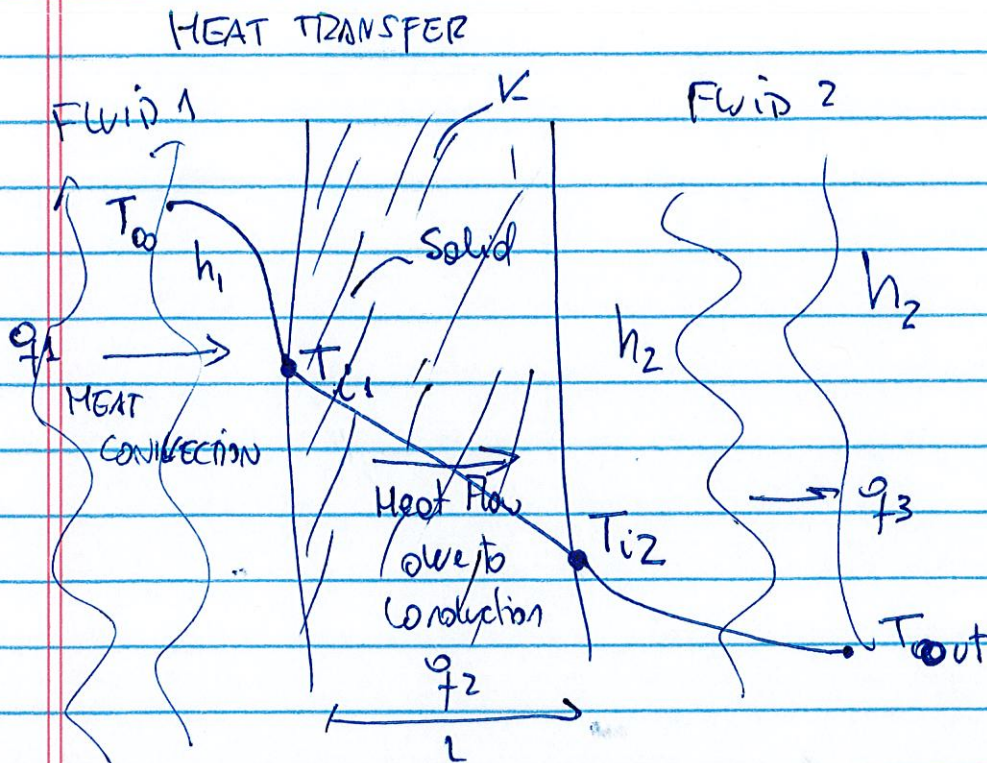 HEAT TRANSFER
FLUID 1
K
FLUID 2
T∞
h₁
Solid
h₂
h₂
q1
T i1
HEAT
CONVECTION
Heat Flow
owe to
Conduction
Ti2
q3
T∞out
q2
L